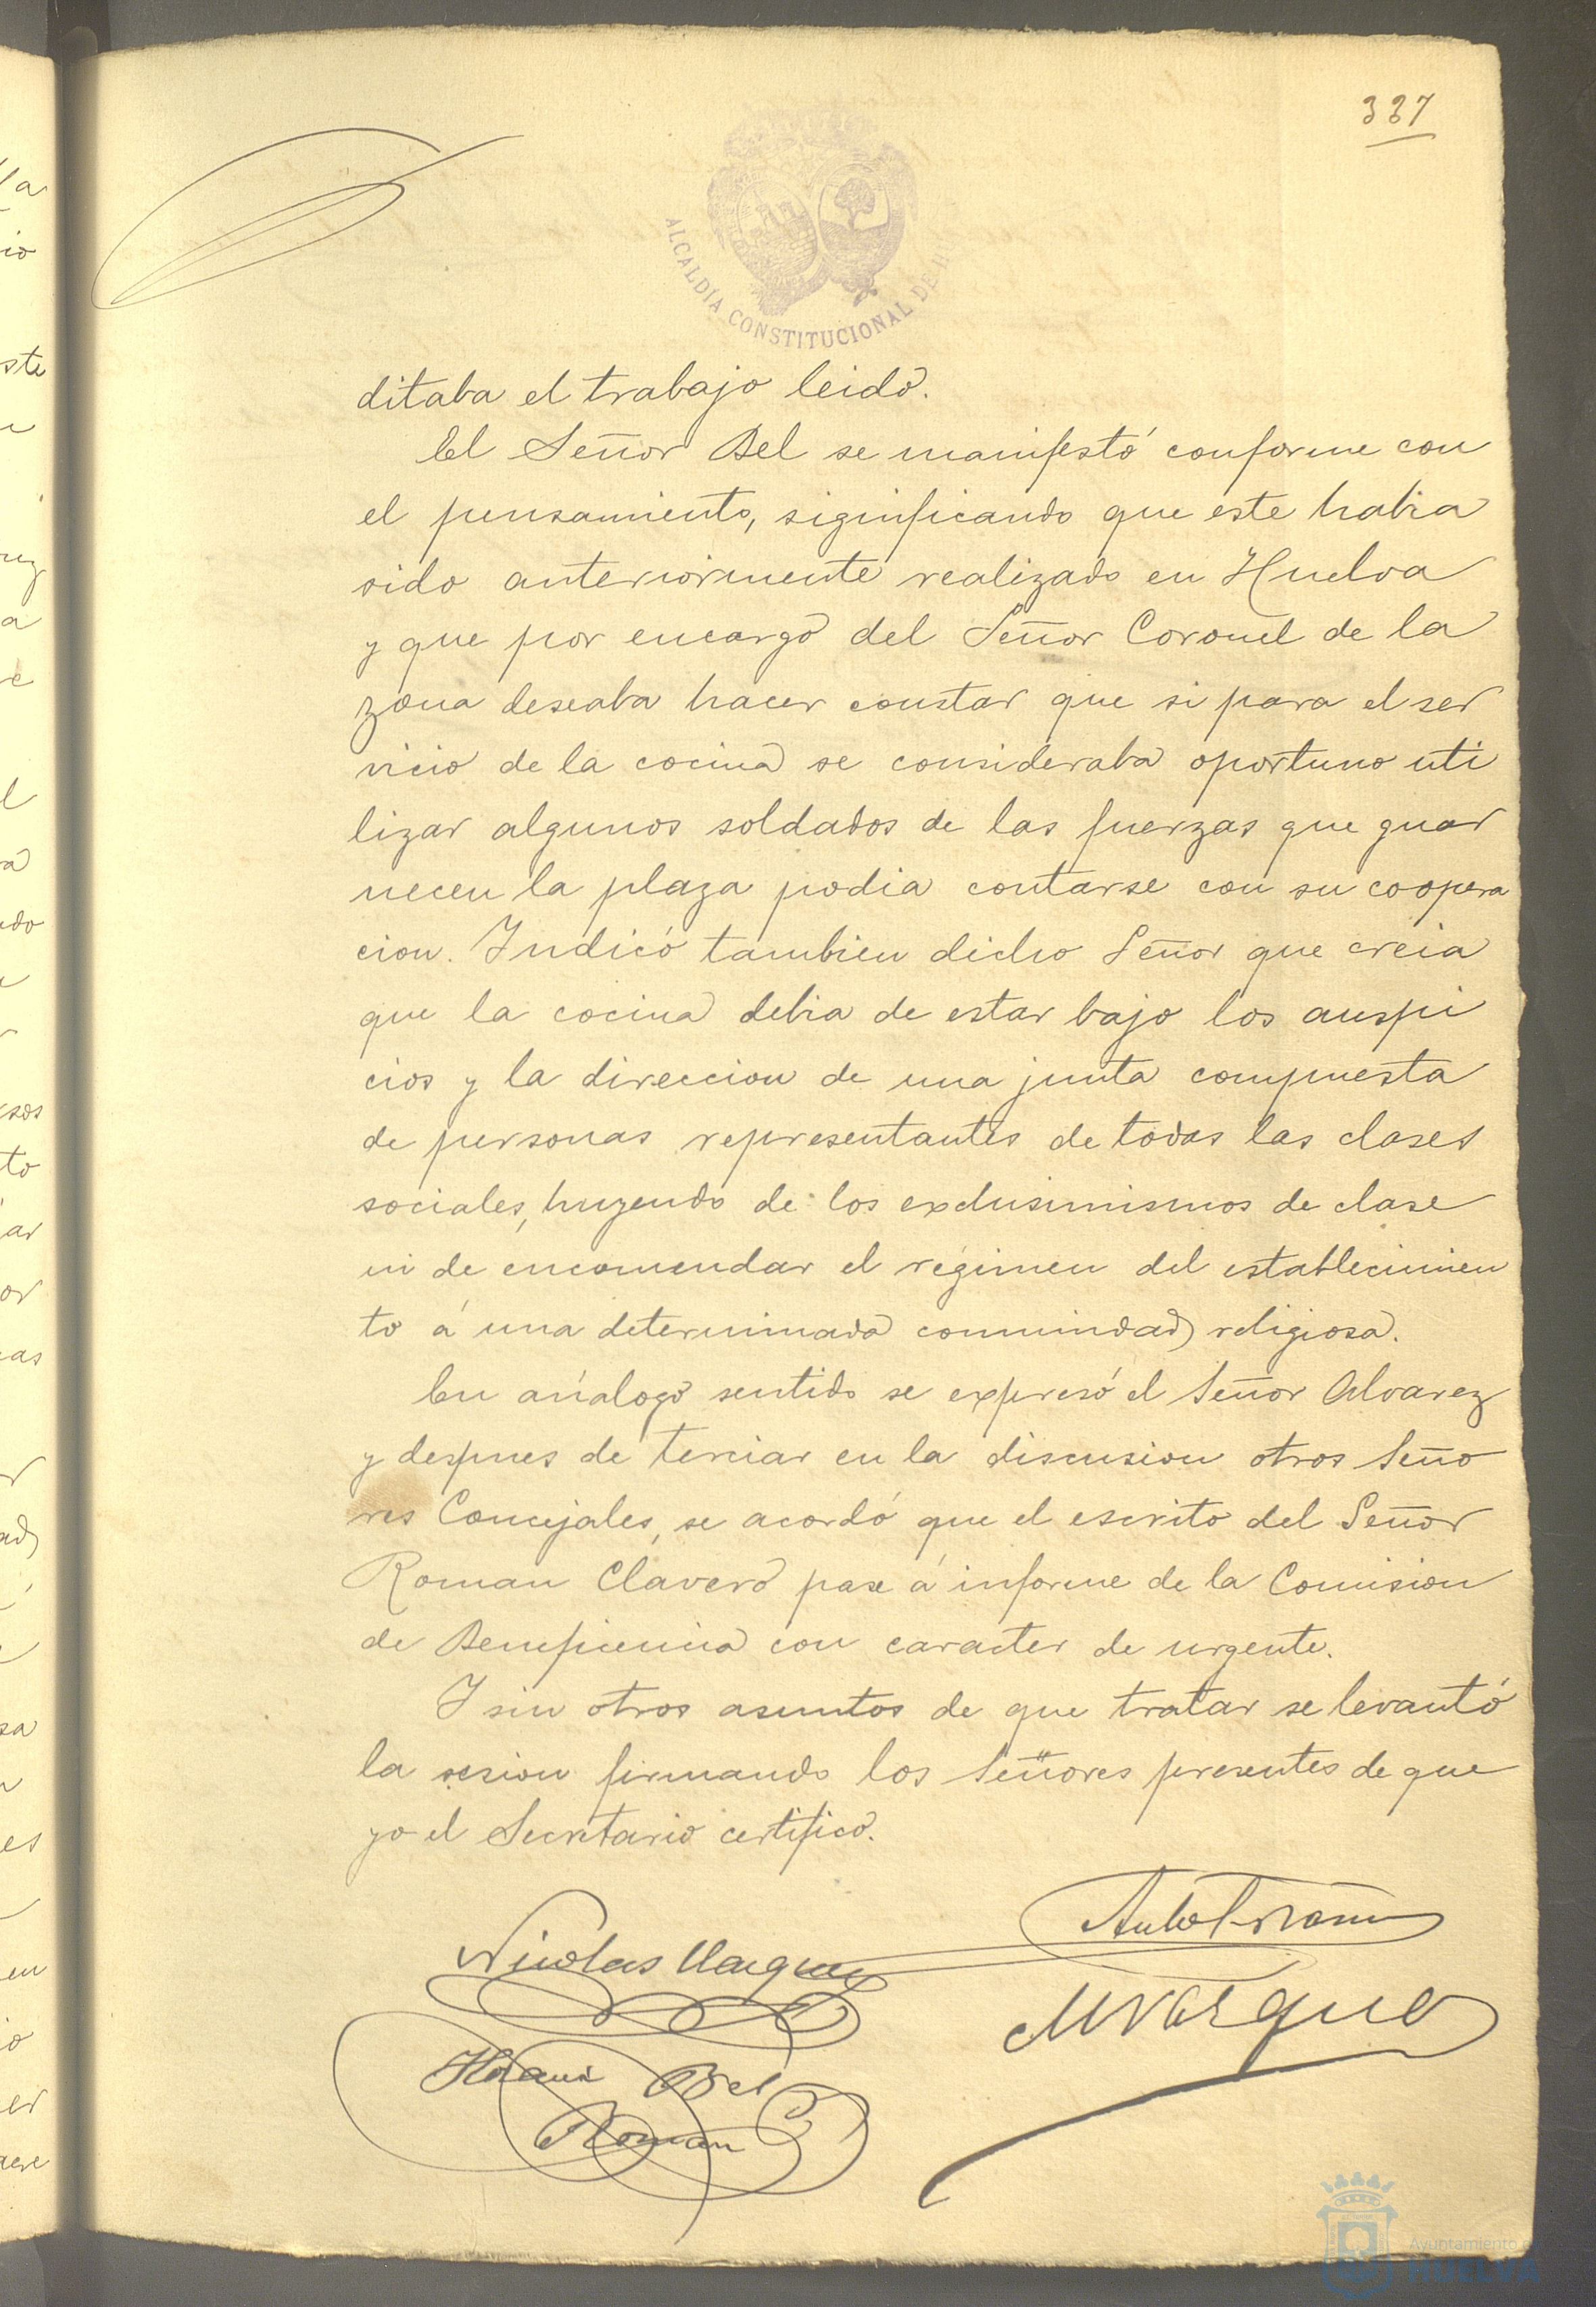 337
ALCALDÍA CONSTITUCIONAL DE H
ditaba el trabajo leido.
El Señor Bel se manifestó conforme con
el pensamiento, significando que este habia
sido anteriormente realizado en Huelva
y que por encargo del Señor Coronel de la
zona deseaba hacer constar que si para el ser
vicio de la cocina se consideraba oportuno uti
lizar algunos soldados de las fuerzas que guar
necen la plaza podia contarse con su coopera
cion. Indicó tambien dicho Señor que creia
que la cocina debia de estar bajo los auspi
cios y la direccion de una junta compuesta
de personas representantes de todas las clases
sociales, huyendo de los exclusimismos de clase
ni de encomendar el régimen del establecimien
to á una determinada comunidad religiosa.
En análogo sentido se expresó el Señor Alvarez
y despues de terciar en la discusion otros Seño
res Concejales, se acordó que el escrito del Señor
Roman Clavero pase á informe de la Comision
de Beneficencia con caracter de urgente.
Y sin otros asuntos de que tratar se levantó
la sesion firmando los Señores presentes de que
yo el Secretario certifico.
Nicolas Vazquez
MVazquez
Bel
Roman
Ayuntamiento de
HUELVA